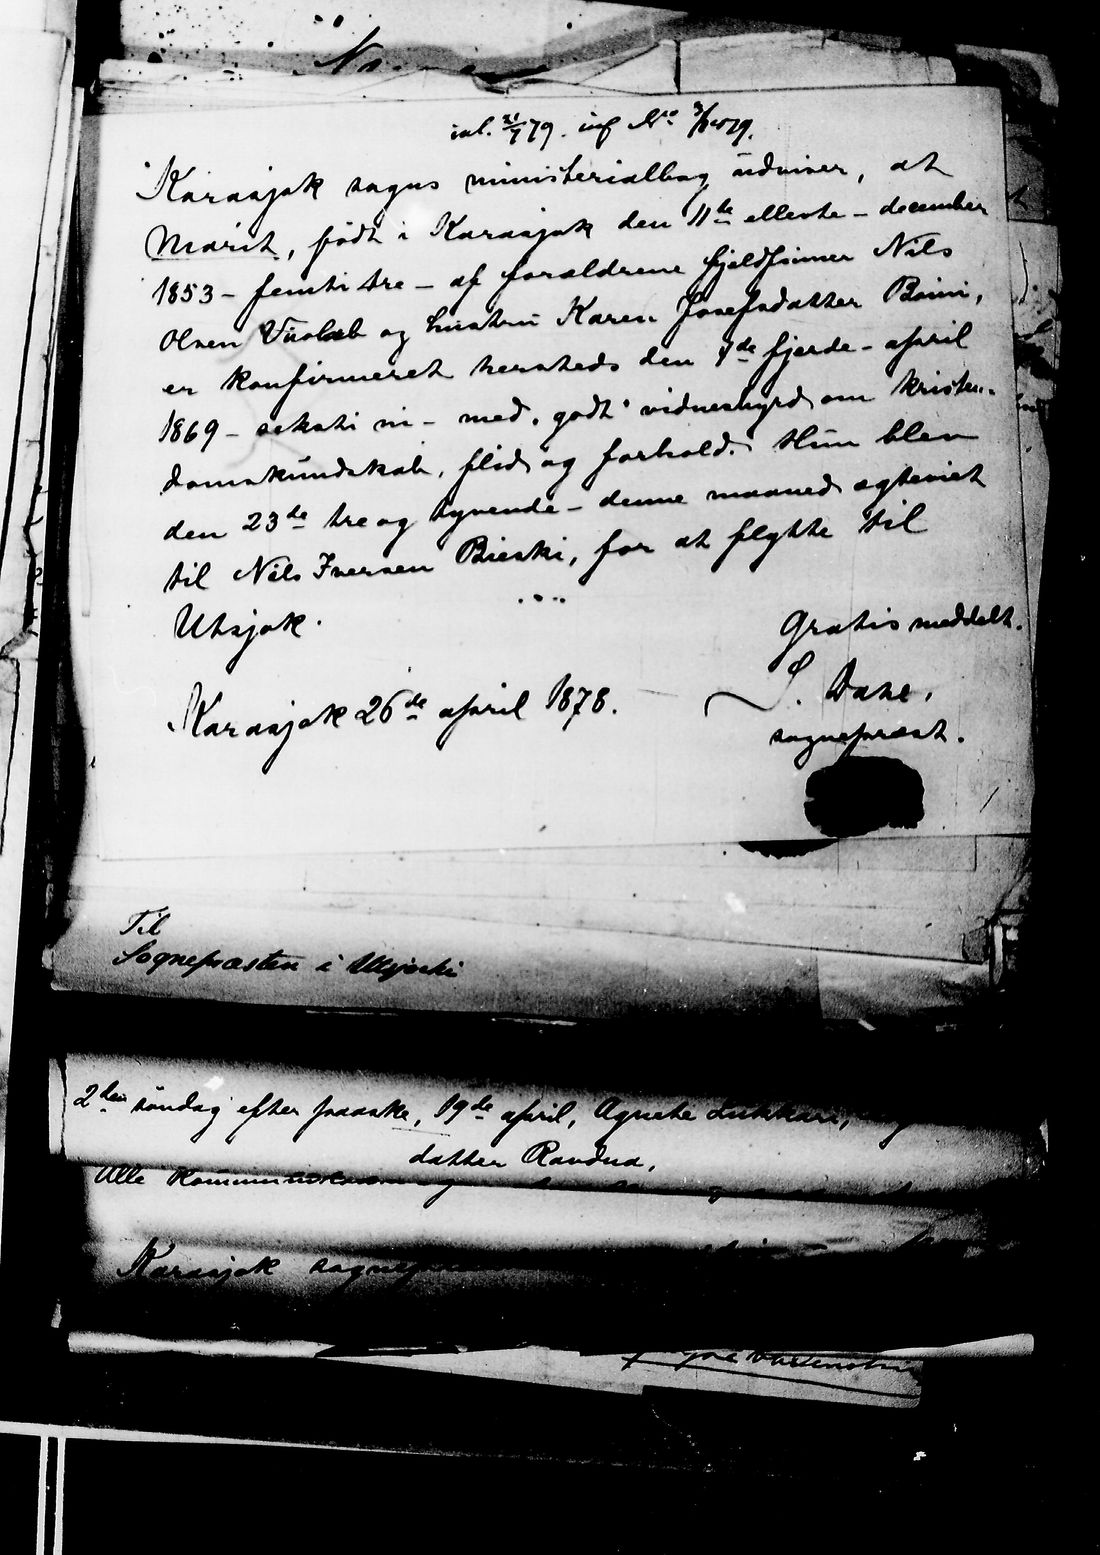 inl. 21/7 79. inf No 3/
Karasjok sogns ministerialbog udviser, at
Marit, født i Karasjok den 11te ellevte - december
1853 - femti tre - af forældrene fjeldfinner Nils
Olsen Vuolab og hustru Karen Josefsdatter Boini,
er konfirmeret hersteds den 4de fjerde - april
1869 - seksti ni - med godt vidnesbyrd om kristen-
domskundskab, flid og forhold. Hun blev
den 23de tre og tyvende - denne maaned ægteviet
til Nils Iversen Bieski, for at flytte til
Utsjok.
Gratis meddelt.
Karasjok 26de april 1878.
S. Dahl,
sogneprest.
Til
Sognepræsten i Utsjoki
2den søndag efter paaske, 19de april, Agnete Lukkari,
datter Ravdna.
Alle
Karasjok